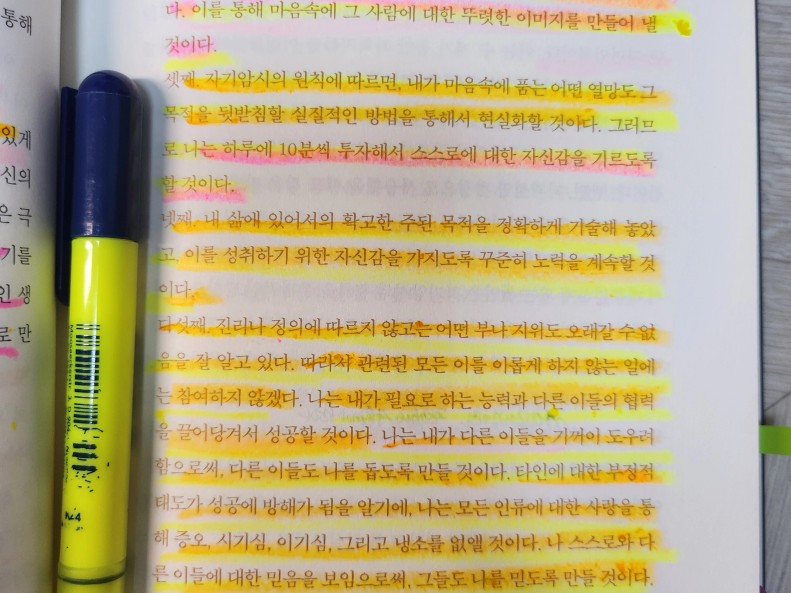 통해
있게
신의
은 극
기를
인 생
로 만
다. 이를 통해 마음속에 그 사람에 대한 뚜렷한 이미지를 만들어 낼
것이다.
셋째. 자기암시의 원칙에 따르면, 내가 마음속에 품는 어떤 열망도 그
목적을 뒷받침할 실질적인 방법을 통해서 현실화할 것이다. 그러므
로 나는 하루에 10분씩 투자해서 스스로에 대한 자신감을 기르도록
할 것이다.
넷째. 내 삶에 있어서의 확고한 주된 목적을 정확하게 기술해 놓았
고, 이를 성취하기 위한 자신감을 가지도록 꾸준히 노력을 계속할 것
이다.
다섯째. 진리나 정의에 따르지 않고는 어떤 부나 지위도 오래갈 수 없
음을 잘 알고 있다. 따라서 관련된 모든 이를 이롭게 하지 않는 일에
는 참여하지 않겠다. 나는 내가 필요로 하는 능력과 다른 이들의 협력
을 끌어당겨서 성공할 것이다. 나는 내가 다른 이들을 기꺼이 도우려
함으로써, 다른 이들도 나를 돕도록 만들 것이다. 타인에 대한 부정적
태도가 성공에 방해가 됨을 알기에, 나는 모든 인류에 대한 사랑을 통
해 증오, 시기심, 이기심, 그리고 냉소를 없앨 것이다. 나 스스로와 다
른 이들에 대한 믿음을 보임으로써, 그들도 나를 믿도록 만들 것이다.